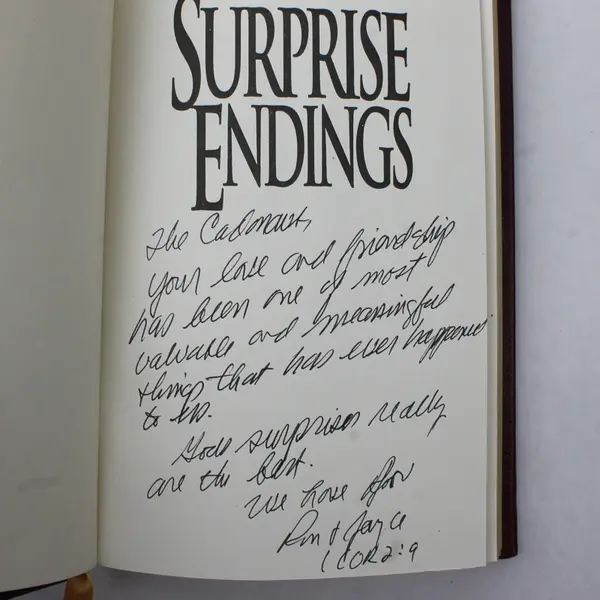 SURPRISE
ENDINGS
The
Your love and friendship
has been one of most
valuable and meaningful
things that has ever happened
to us.
Gods surprises really
are the best.
We love You
Ron & Joyce
1 COR 2:9